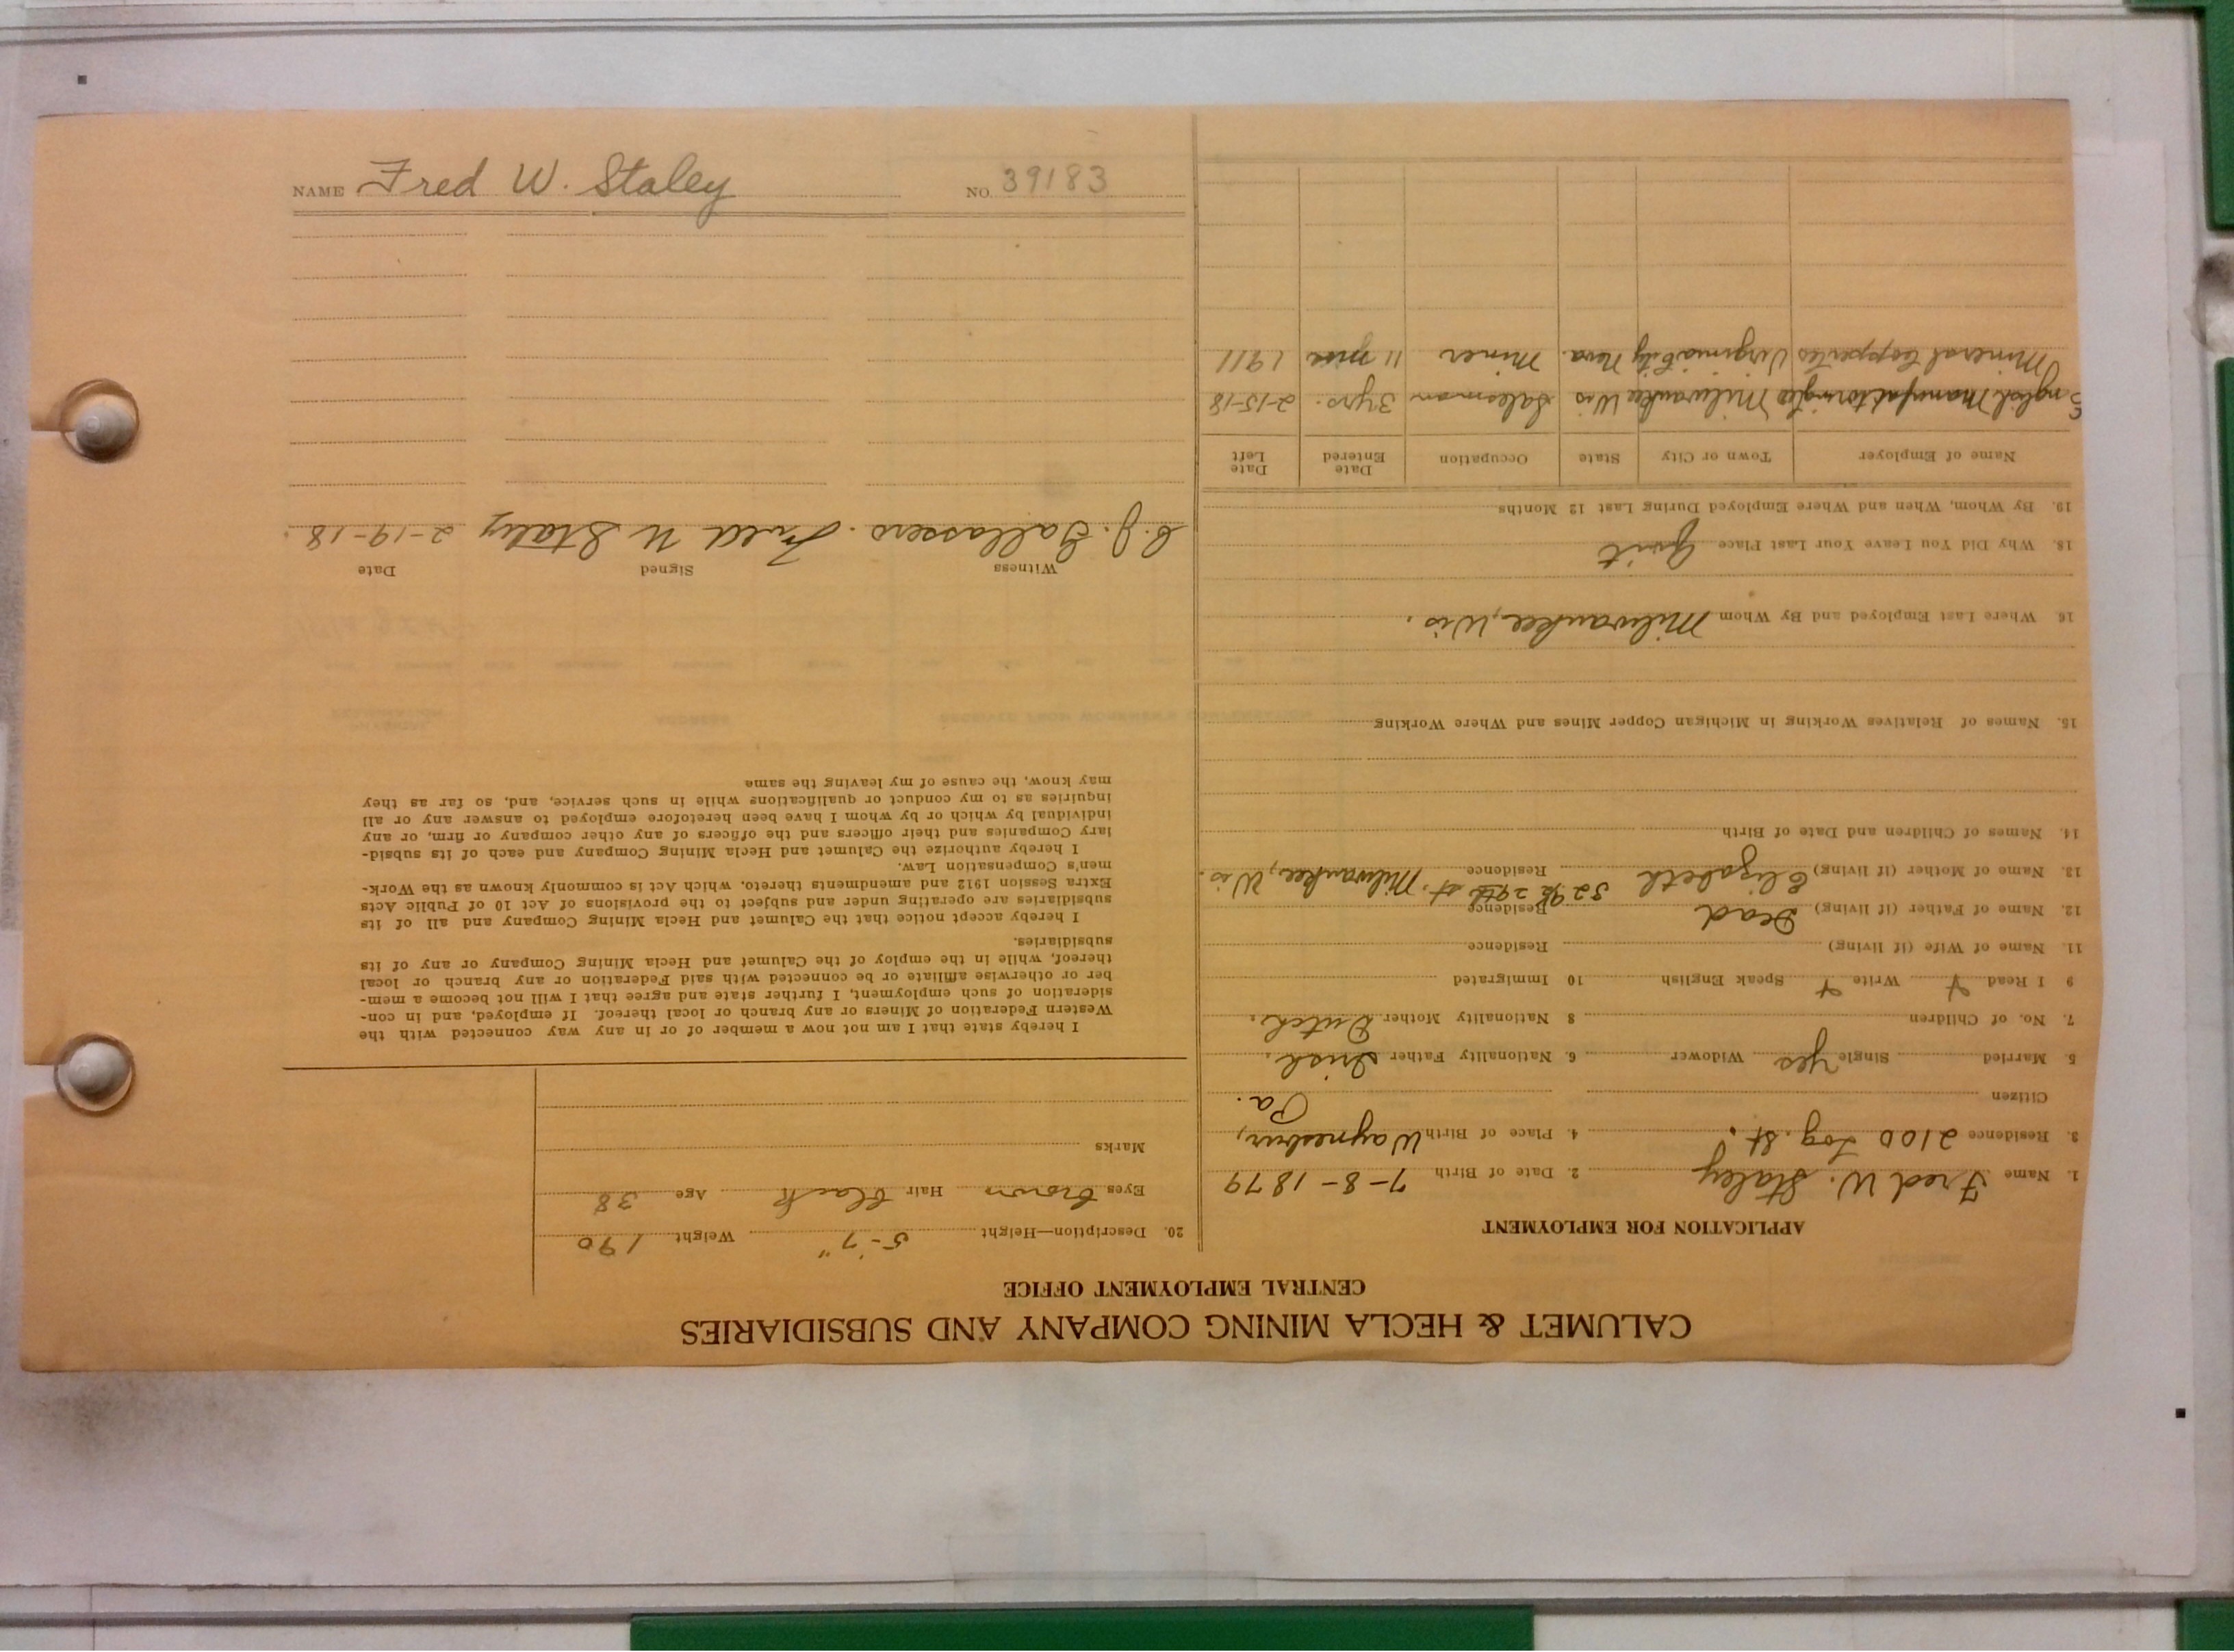 CALUMET & HECLA MINING COMPANY AND SUBSIDIARIES
CENTRAL EMPLOYMENT OFFICE
APPLICATION FOR EMPLOYMENT
1. Name Fred W. Staley 2. Date of Birth 7-8-1879
3. Residence 2100 Log. St. 4. Place of Birth Waynesbur, Pa.
Citizen
5. Married Single yes Widower 6. Nationality Father Irish.
7. No. of Children 8 Nationality Mother Dutch.
9 I Read Write Speak English 10 Immigrated
11. Name of Wife (if living) Residence
12. Name of Father (if living) Dead Residence
13. Name of Mother (if living) Elizabeth Residence 29th st. Milwaukee, Wis.
14. Names of Children and Date of Birth
15. Names of Relatives Working in Michigan Copper Mines and Where Working
16 Where Last Employed and By Whom Milwaukee, Wis.
18. Why Did You Leave Your Last Place
19. By Whom, When and Where Employed During Last 12 Months
Name of Employer Town or City State Occupation Date Entered Date Left
English Manufactoring Co Milwaukee Wis Salesman 3 yrs. 2-15-18
Mineral Virginia City Neva. Miner 11 1911
20. Description—Height 5-7" Weight 190
Eyes brown Hair black Age 38
Marks
I hereby state that I am not now a member of or in any way connected with the
Western Federation of Miners or any branch or local thereof. If employed, and in con-
sideration of such employment, I further state and agree that I will not become a mem-
ber or otherwise affiliate or be connected with said Federation or any branch or local
thereof, while in the employ of the Calumet and Hecla Mining Company or any of its
subsidiaries.
I hereby accept notice that the Calumet and Hecla Mining Company and all of its
subsidiaries are operating under and subject to the provisions of Act 10 of Public Acts
Extra Session 1912 and amendments thereto, which Act is commonly known as the Work-
men's Compensation Law.
I hereby authorize the Calumet and Hecla Mining Company and each of its subsid-
iary Companies and their officers and the officers of any other company or firm, or any
individual by which or by whom I have been heretofore employed to answer any or all
inquiries as to my conduct or qualifications while in such service, and, so far as they
may know, the cause of my leaving the same
Witness Signed Date
Fred W Staley 2-19-18.
NAME Fred W. Staley NO. 39183